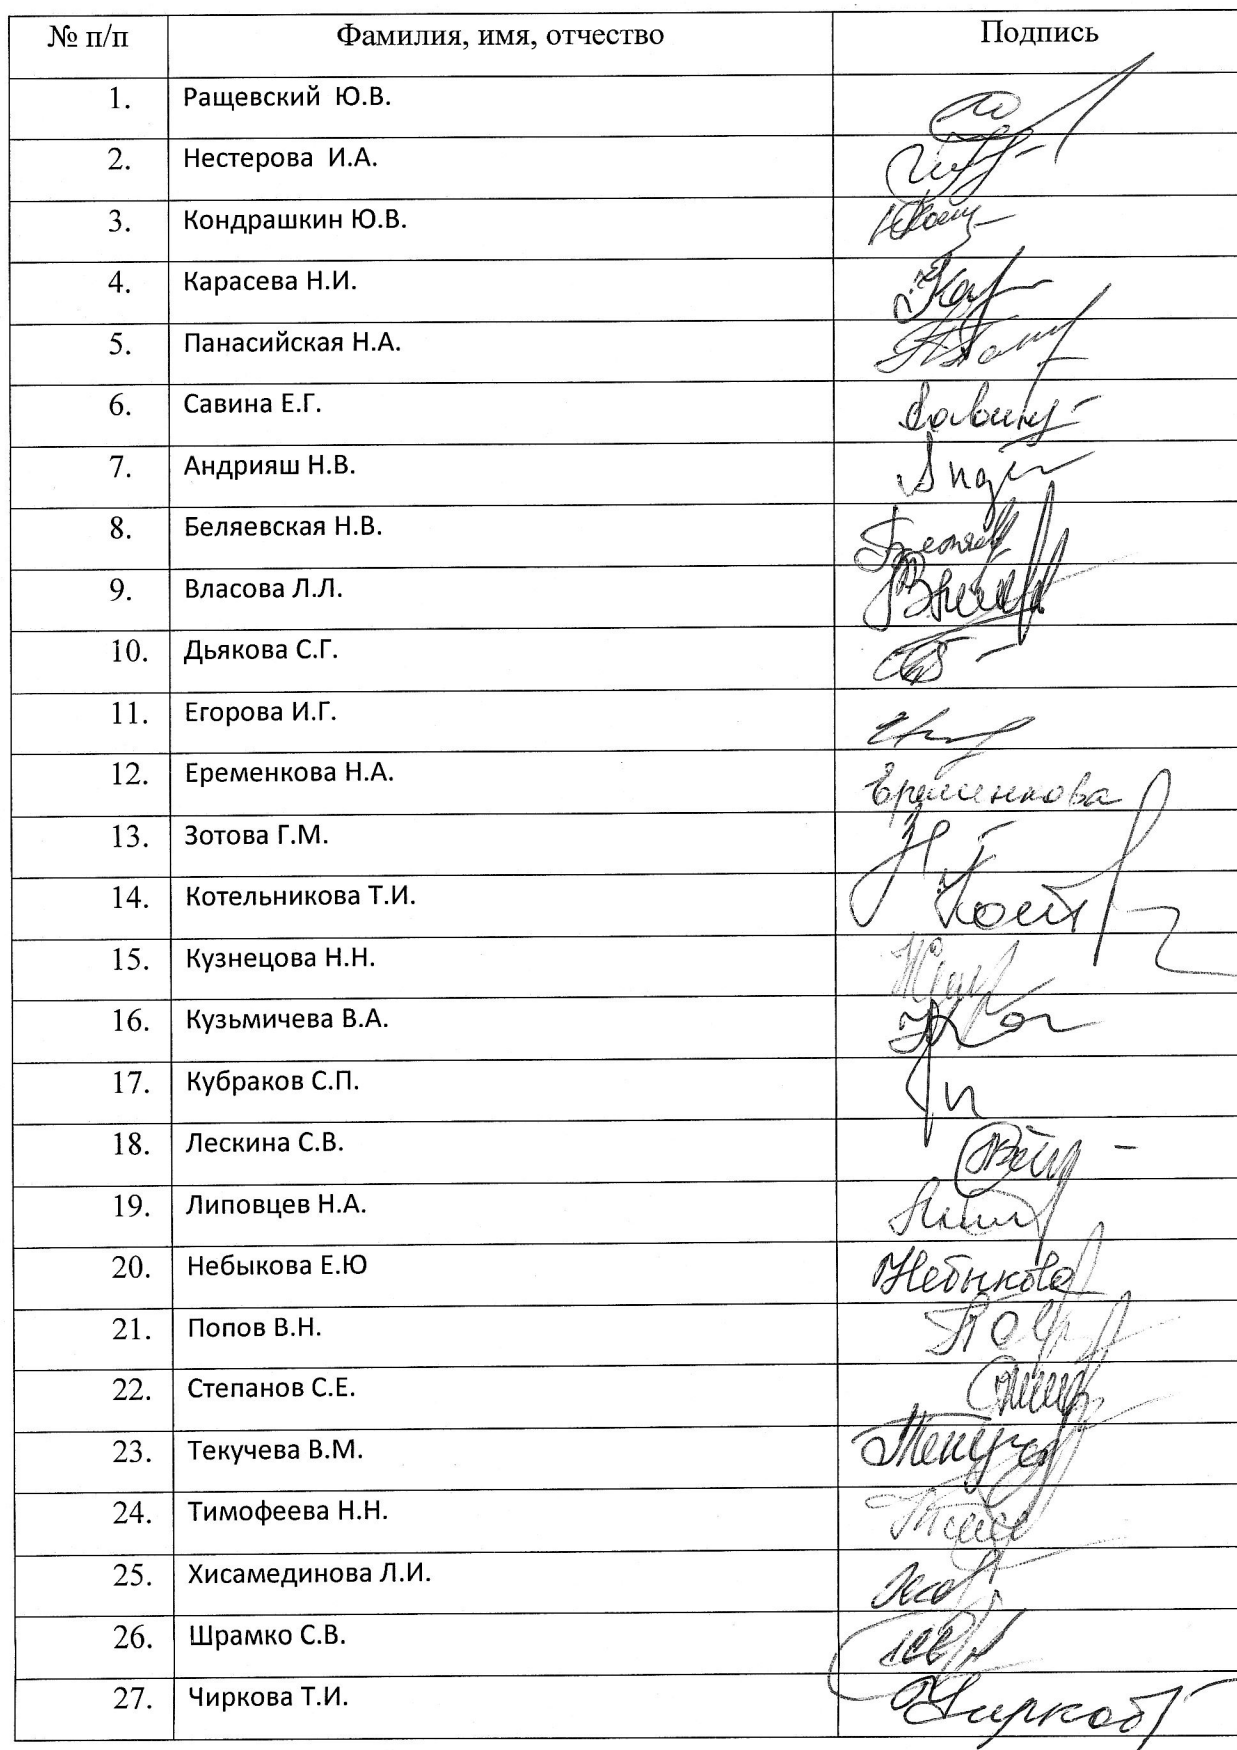 № п/п Фамилия, имя, отчество Подпись
1. Ращевский Ю.В.
2. Нестерова И.А.
3. Кондрашкин Ю.В.
4. Карасева Н.И.
5. Панасийская Н.А.
6. Савина Е.Г.
7. Андрияш Н.В.
8. Беляевская Н.В.
9. Власова Л.Л.
10. Дьякова С.Г.
11. Егорова И.Г.
12. Еременкова Н.А. Еременкова
13. Зотова Г.М.
14. Котельникова Т.И.
15. Кузнецова Н.Н.
16. Кузьмичева В.А.
17. Кубраков С.П.
18. Лескина С.В.
19. Липовцев Н.А.
20. Небыкова Е.Ю Небыкова
21. Попов В.Н.
22. Степанов С.Е.
23. Текучева В.М.
24. Тимофеева Н.Н.
25. Хисамединова Л.И.
26. Шрамко С.В.
27. Чиркова Т.И.